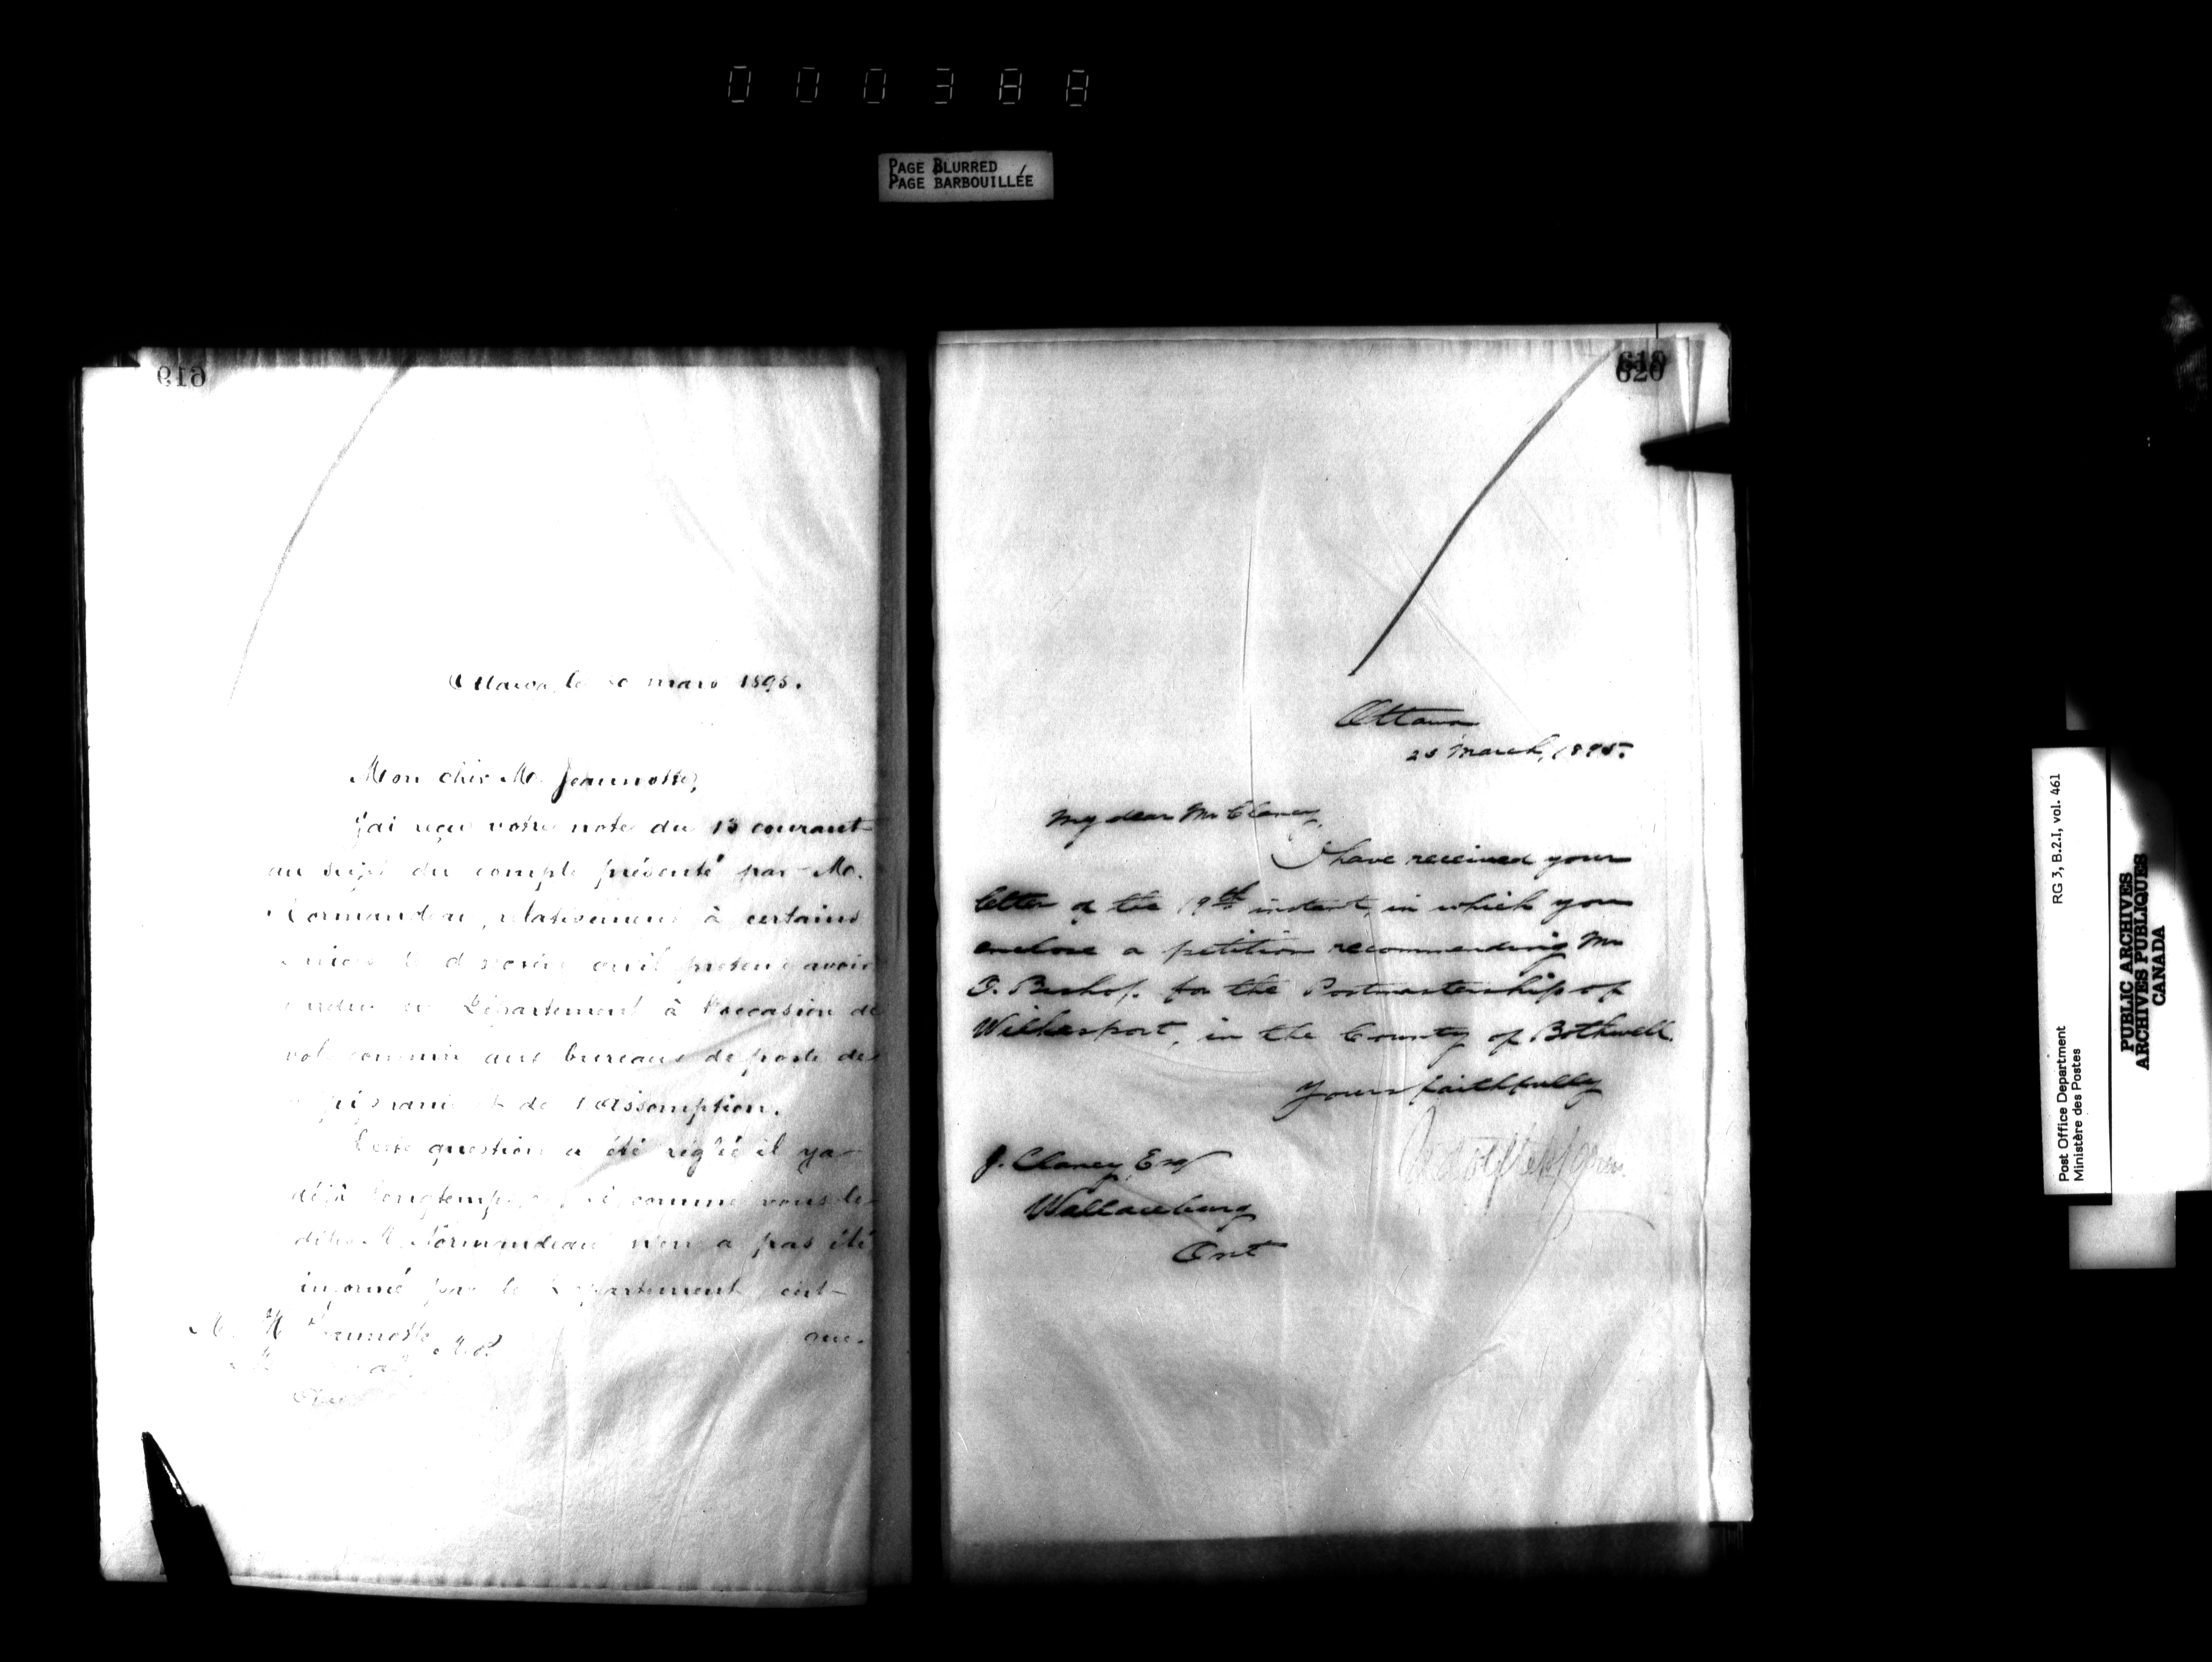 000388
PAGE BLURRED
PAGE BARBOUILLÉE
619
Ottawa, le mars 1895.
Mon cher M. Jeannotte,
J'ai reçu votre note du 13 courant
au sujet du compte présenté par M.
Normandeau, relativement à certains
services de qu'il prétend avoir
rendus au Département à l'occasion de
vols commis aux bureaux de poste de
et de l'Assomption.
Cette question a été réglée il y a
déjà longtemps, et si, comme vous le
dites M. Normandeau n'en a pas été
informé par le Département, c'est
que.
M. H. Jeannotte, M.P.
620
Ottawa
25 March, 1895.
My dear Mr Clancy,
I have received your
letter of the 19th instant, in which you
enclose a petition recommending Mr
O. Bishop for the Postmastership of
Wilkesport, in the County of Bothwell.
Yours faithfully
J. Clancy Esq
Wallaceburg
Ont
Post Office Department
Ministère des Postes
RG 3, B.2.I, vol. 461
PUBLIC ARCHIVES
ARCHIVES PUBLIQUES
CANADA